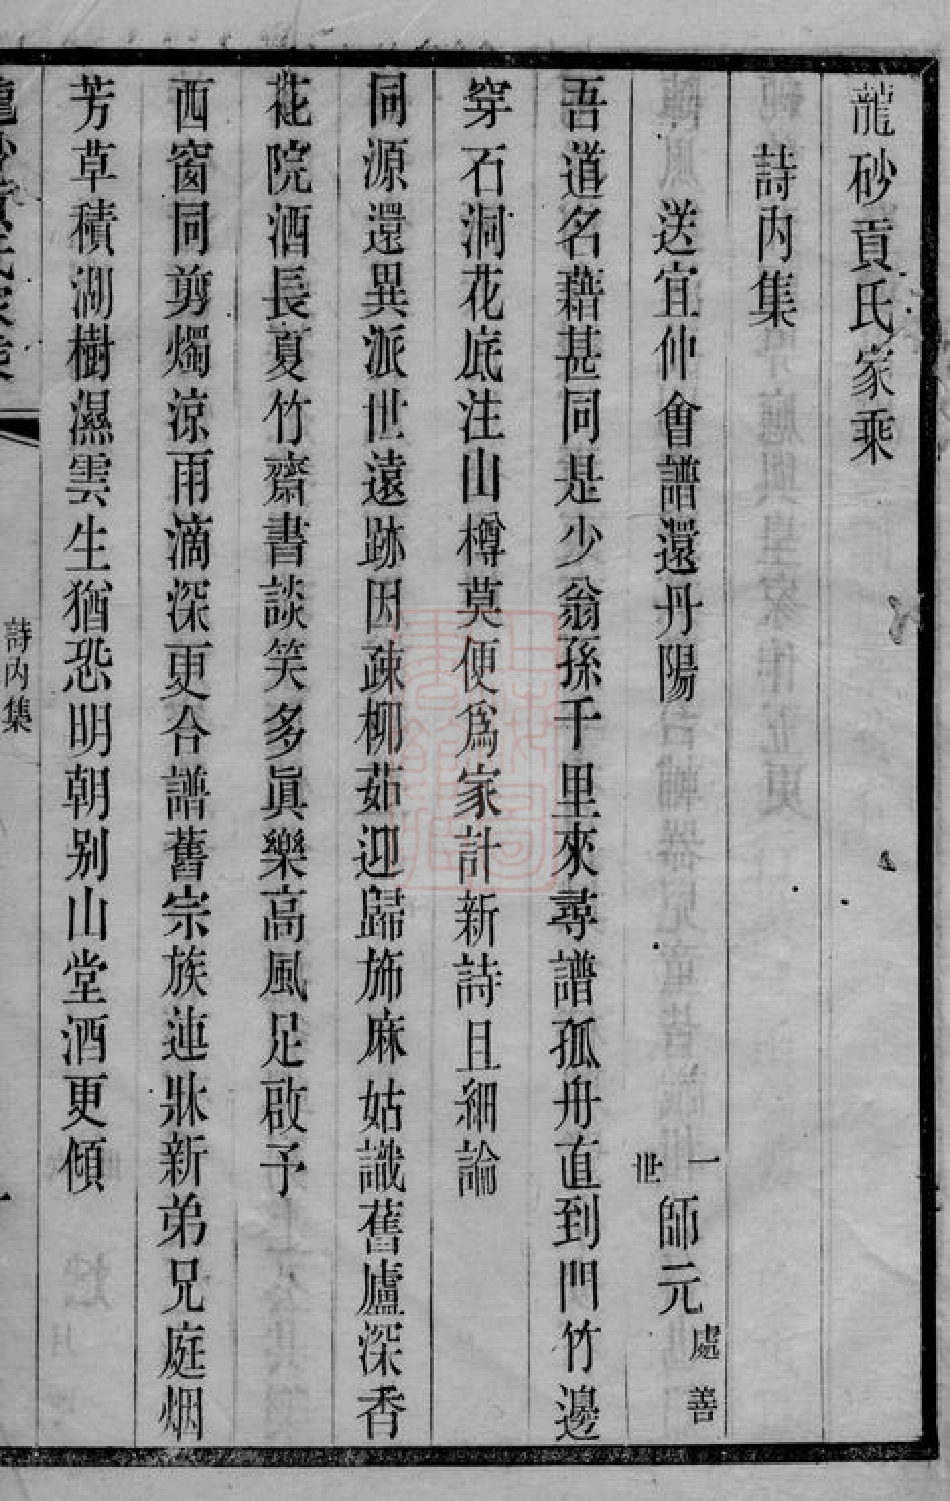 龍砂貢氏家乘
詩內集
送宜仲會譜還丹陽 一世 師元 處善
吾道名藉甚同是少翁孫千里來尋譜孤舟直到門竹邊
穿石洞花底注山樽莫便爲家計新詩且細論
同源還異派世遠跡因疎柳茹迎歸斾麻姑識舊廬深香
花院酒長夏竹齋書談笑多眞樂高風足啟予
西窗同剪燭涼雨滴深更合譜舊宗族連牀新弟兄庭烟
芳草積澗樹濕雲生猶恐明朝别山堂酒更傾
龍砂貢氏家乘
詩內集